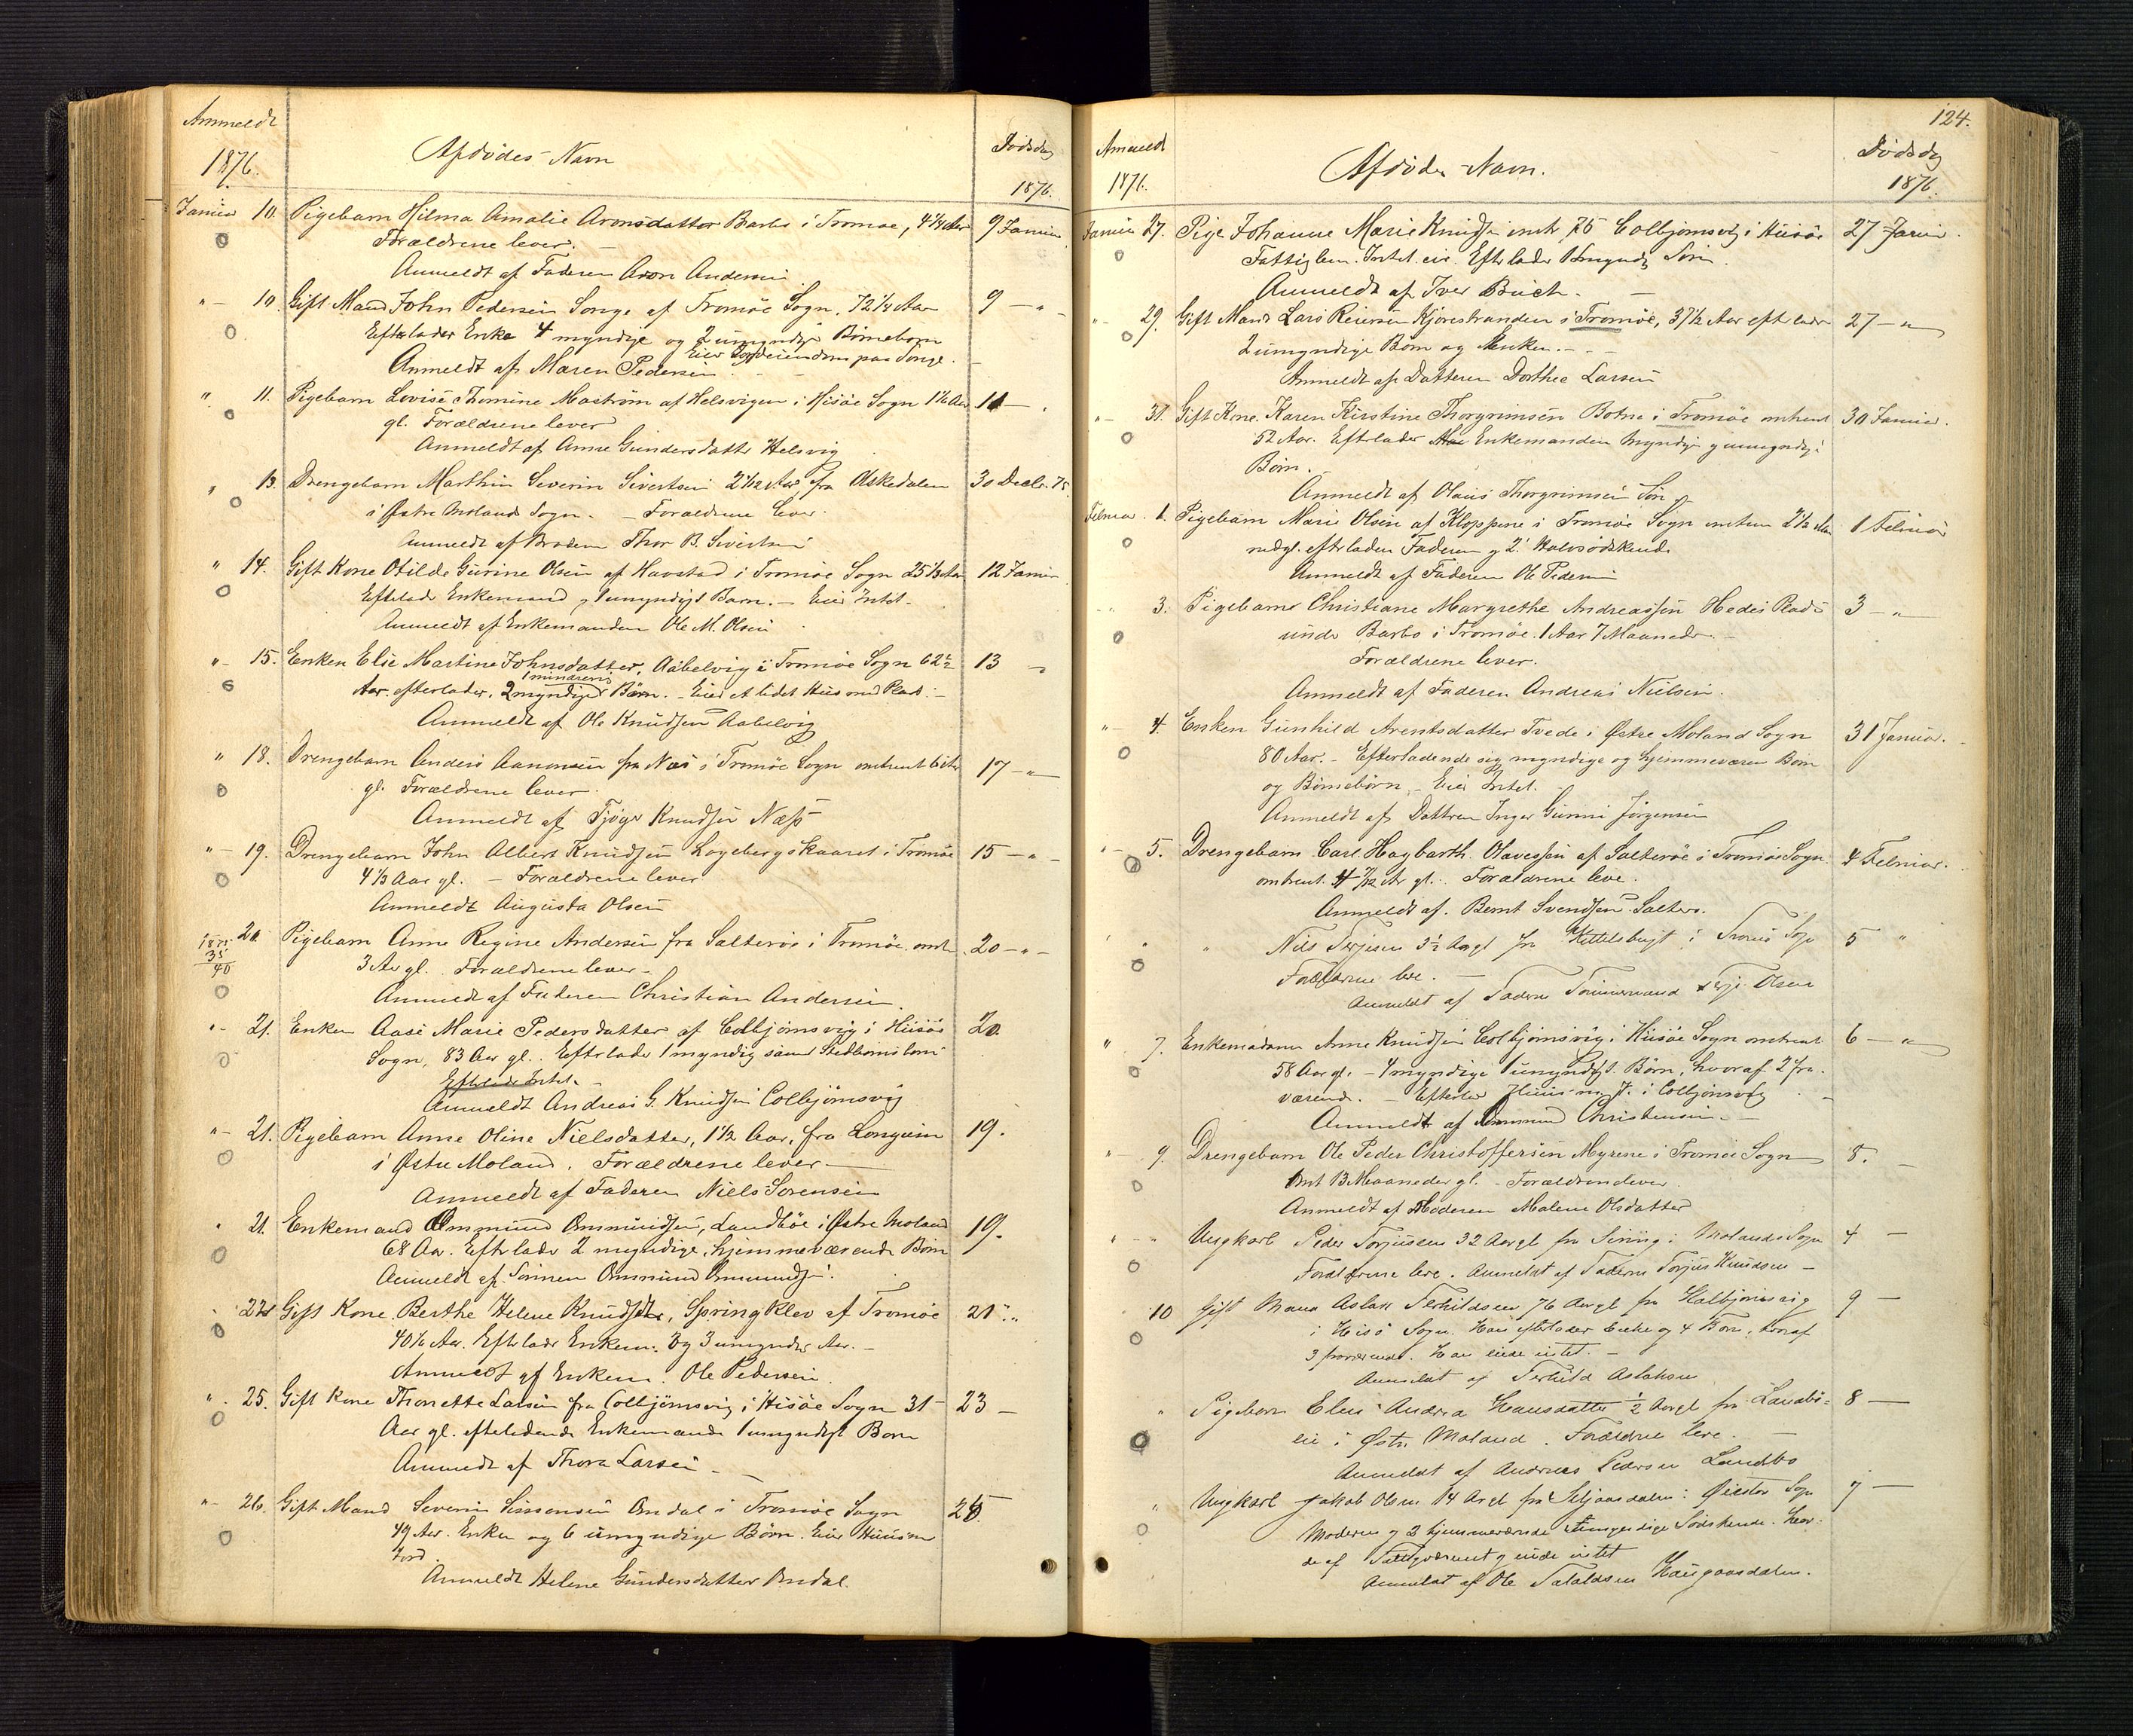 Anmeldt
1876.
Afdødes Navn
Dødsdag
1876.
Januar 10. Pigebarn Hilma Amalie Aronsdatter Barbo i Tromøe, 4 1/4 Aar 9 Januar
Forældrene lever. –
Anmeldt af Faderen Aron Andersen
"– 10. Gift Mand John Pedersen Songe af Tromøe Sogn. 72 1/4 Aar 9 – "
Efterlader Enke 4 myndige og 2 umyndige Børnebørn
Eier Jordeiendom paa Songe.
Anmeldt af Maren Pedersen
" 11. Pigebarn Lovise Thomine Mastrøm af Helsvigen i Hisøe Sogn 1 1/6 Aar 11 –
gl. Forældrene lever
Anmeldt af Anne Gundersdatter Helsvig
" 13. Drengebarn Marthin Severin Sivertsen 2 1/12 Aar fra Askedalen 30 Decbr. 75
i Østre Moland Sogn. – Forældrene lever.
Anmeldt af Broderen Thor B. Sivertsen
" 14. Gift Kone Otilde Gurine Olsen af Havstad i Tromøe Sogn 25 1/3 Aar 12 Januar
Efterlader Enkemand og 1 umyndigt Barn. – Eier Intet.
Anmeldt af Enkemanden Ole M. Olsen
"– 15. Enken Else Martine Johnsdatter, Aabelvig i Tromøe Sogn 62 1/2 13 –
Aar. efterlader. 2 myndige Børn. – Eier et lidet Huus med Plads. –
Anmeldt af Ole Knudsen Aabelvig
" 18. Drengebarn Anders Aanonsen fra Næs i Tromøe Sogn omtrent 6 Aar 17 – "
gl. Forældrene lever
Anmeldt af Tjøge Knudsen Næss
"– 19. Drengebarn John Albert Knudsen Logebergskaaret i Tromøe 15 – " –
4 1/3 Aar gl. – Forældrene lever
Anmeldt Augusta Olsen
20. Pigebarn Anne Regine Andersen fra Salterøe i Tromøe omt. 20 – " –
1875
35
40
3 Aar gl. Forældrene lever –
Anmeldt af Faderen Christian Andersen
"– 21. Enken Aase Marie Pedersdatter af Colbjørnsvig i Hisøe 20
Sogn, 83 Aar gl. Efterlader 1 myndig samt Stedbørnsbørn
Efterlader Intet.
Anmeldt Andreas G. Knudsen Colbjørnsvig
"– 21. Pigebarn Anne Oline Nielsdatter, 1 1/2 Aar, fra Longum 19.
i Østre Moland. Forældrene lever –
Anmeldt af Faderen Niels Sørensen
" 21. Enkemand Ommund Ommundsen, Landbøe i Østre Moland 19.
68 Aar. Efterlader 2 myndige, hjemmeværende Børn
Anmeldt af Sønnen Ommund Ommundsen.
22 Gift Kone Berthe Helene Knudsdtr, Springklev af Tromøe 21. "
40 1/2 Aar. Efterlader Enkem. og 3 umyndige
Anmeldt af Enkem. Ole Pedersen
" 25. Gift Kone Thonette Larsen fra Colbjørnsvig i Hisøe Sogn 31 – 23 –
Aar gl. efterladende Enkemand 1 umyndigt Barn
Anmeldt af Thora Larsen
"– 26. Gift Mand Severin Simonsen Omdal i Tromøe Sogn 25
49 Aar. Enken og 6 umyndige Børn. Eier Huus m
Jord.
Anmeldt Helene Gundersdatter Omdal.
124.
Anmeldt
1876.
Afdødes Navn.
Dødsdag
1876.
Januar 27. Pige Johanne Marie Knudsen omtr. 75 Colbjørnsvig i Hisøe 27 Januar.
Fattiglem. Intet eie. Efterlader 1 myndig Søn.
Anmeldt af Iver Buch. –
"– 29. Gift Mand Lars Reiersen Kjørestranden i Tromøe, 37 1/2 Aar efterlader 27 – "
2 umyndige Børn og Enken. –
Anmeldt af Datteren Dorthea Larsen
"– 31. Gift Kone. Karen Kirstine Thorgrimsen Botne i Tromøe omtrent 30 Januar.
52 Aar. Efterlader Enkemanden myndige og umyndige
Børn.
Anmeldt af Olaus Thorgrimsen Søn
Februar 1. Pigebarn Marie Olsen af Kloppene i Tromøe Sogn omtrent 2 1/2 Aar 1 Februar
gl. efterlader Faderen og 2 Halvsødskende
Anmeldt af Faderen Ole Pedersen
3. Pigebarn Christiane Margrethe Andreassen Hedes Plads 3 – "
under Barbo i Tromøe. 1 Aar 7 Maaneder –
Forældrene lever.
Anmeldt af Faderen Andreas Nielsen.
"– 4. Enken Gunhild Arentsdatter Tvede i Østre Moland Sogn 31 Januar.
80 Aar. – Efterladende sig myndige og hjemmeværen Børn
og Børnebørn. – Eier Intet.
Anmeldt af Dattren Inger Gurine Jørgensen
"– 5. Drengebarn Carl Hagbarth Olavesen af Salterøe i Tromøe Sogn. 4 Februar.
omtrent 4 7/12 Ar gl. Forældrene leve.
Anmeldt af. Bernt Svendsen Salterø.
" Nils Terjesen 3 1/2 Aargl fra Kittelsbugt i Tromø Sogn 5 "
Forældrene leve. –
Anmeldt af Faderen Tømmermand Terje Olsen
" 7. Enkemadame Anne Knudsen Colbjørnsvig i Hisøe Sogn omtrent 6 – "
58 Aar gl. – 4 myndige 1 umyndigt Børn, hvoraf 2 fra-
værende. – Efterlader Huus i Colbjørnsvig
Anmeldt af Ommund Christensen –
"– 9. Drengebarn Ole Peder Christoffersen Myrene i Tromøe Sogn 8. –
Omt 13 Maaneder gl. – Forældrene lever.
Anmeldt af Moderen Malene Olsdatter
"– " Ungkarl Peder Torjusen 32 Aargl fra i Molands Sogn 4 –
Forældrene leve. Anmeldt af Faderen Torjus Knudsen –
10 Gift Mand Aslak Terkildsen 76 Aargl fra Kolbjørnsvig 9 –
i Hisø Sogn. Han efterlader Enke og 4 Børn, hvoraf
3 fraværende. Han eiede intet. –
Anmeldt af Terkild Aslaksen
" Pigebarn Elen Andrea Hansdatter 1/2 Aargl fra Landbø- 8 –
eie i Østre Moland. Forældrene leve. –
Anmeldt af Andreas Pedersen Landbø
" Ungkarl Jakob Olsen 14 Aargl fra i Øiestad Sogn 7 –
Moderen og 3 hjemmeværende umyndige Sødskende. Lev-
de af Fattigvæsenet og eiede intet
Anmeldt af Ole Haugaasdalen.